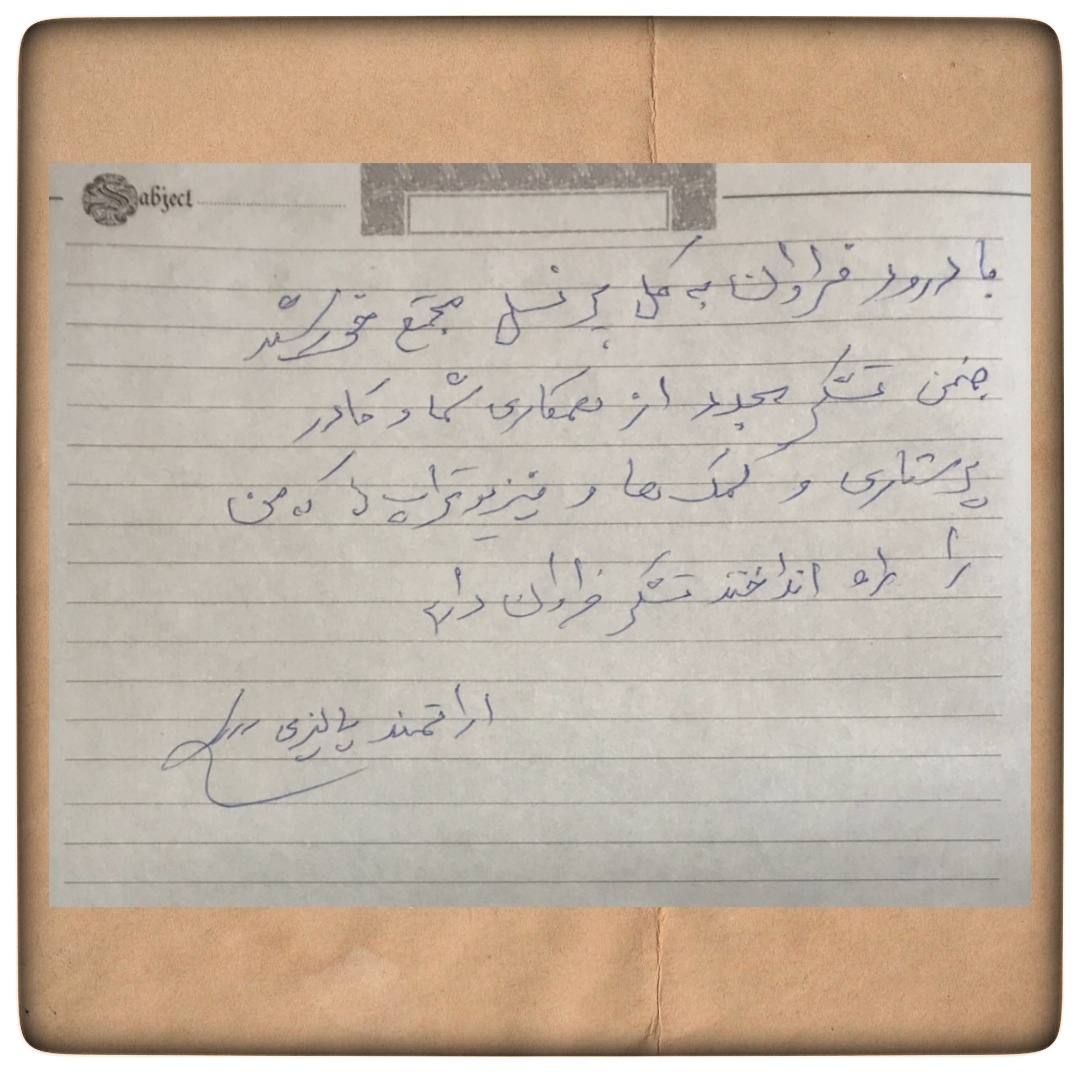 Sabject
با درود فراوان به کل پرنسل مجتمع خورشید
ضمن تشکر مجدد از همکاری شما و کادر
پرستاری و کمک ها و فیزیوتراپ ها که من
را راه انداختند تشکر فراوان دارم
ارادتمند پالیزی